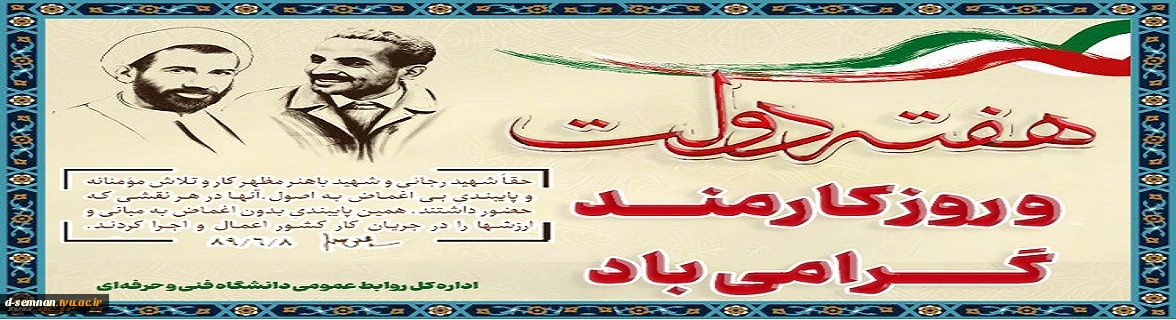 هفته دولت
و روز کارمند
گرامی باد
حقاً شهید رجائی و شهید باهنر مظهر کار و تلاش مؤمنانه
و پایبندی بی اغماض به اصول.آنها در هر نقشی که
حضور داشتند، همین پایبندی بدون اغماض به مبانی و
ارزشها را در جریان کار کشور اعمال و اجرا کردند.
۸۹/۶/۸
اداره کل روابط عمومی دانشگاه فنی و حرفه‌ای
d-semnan.tvu.ac.ir